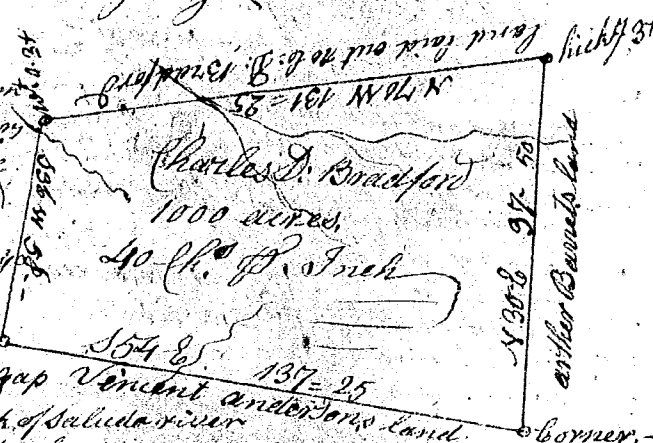 land laid out to C: D: Bradford
hick'y 3x
N 70 W 131=25
Charles D: Bradford
1000 acres,
40 Chs. Pr. Inch
N 30 E 97- 50
arther Barrets land
S54 E
137=25
gap Vincent andersons land.
of Saluda river
Corner.-